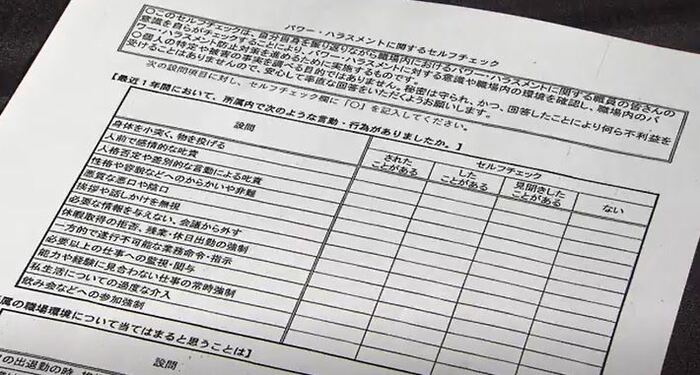 パワー・ハラスメントに関するセルフチェック
○このセルフチェックは、自分自身を振り返りながら職場内におけるパワー・ハラスメントに関する職員の皆さんの
意識を自らがチェックすることにより、パワー・ハラスメントに対する意識や職場内の環境を確認し、職場内のパ
ワー・ハラスメント防止対策を進めるために実施するものです。
○個人の特定や被害の事実を調べる目的ではありません。秘密は守られ、かつ、回答したことにより何ら不利益を
受けることはありませんので、安心して率直な回答をいただくようお願いします。
次の設問項目に対し、セルフチェック欄に「○」を記入してください。
【最近1年間において、所属内で次のような言動・行為がありましたか。】
設問
セルフチェック
されたことがある
したことがある
見聞きしたことがある
ない
身体を小突く、物を投げる
人前で感情的な叱責
人格否定や差別的な言動による叱責
性格や容貌などへのからかいや非難
悪質な悪口や陰口
挨拶や話しかけを無視
必要な情報を与えない、会議から外す
休暇取得の拒否、残業・休日出勤の強制
一方的で遂行不可能な業務命令・指示
必要以上の仕事への監視・関与
能力や経験に見合わない仕事の常時強制
私生活についての過度な介入
飲み会などへの参加強制
属の職場環境について当てはまると思うことは】
設問
の出退勤の時、